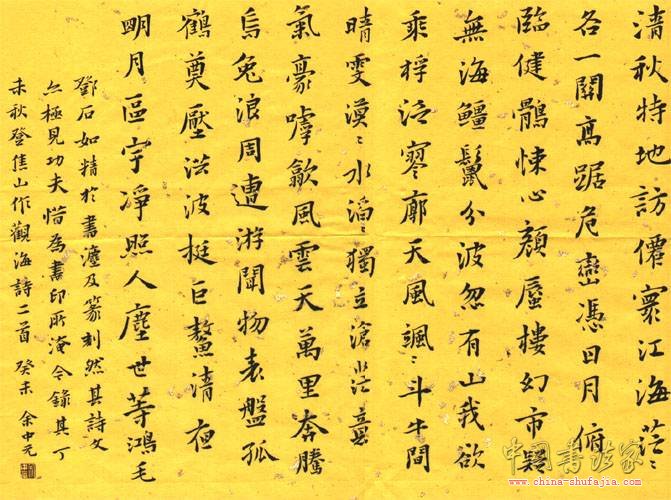 清秋特地訪僊寰江海茫〻
各一關高踞危巒憑日月俯
臨健鶻悚心顏蜃樓幻市疑
無海鱷鬣分波忽有山我欲
乘桴泛寥廓天風颯〻斗牛間
晴雯漠〻水滔〻獨立滄茫意
氣豪噓歙風雲天萬里奔騰
烏兔浪周遭游聞物表盤孤
鶴奠壓洪波挺巨鰲清夜
朙月區宇淨照人塵世等鴻毛
鄧石如精於書灋及篆刻然其詩文
亦極見功夫惜為書印所淹今錄其丁
未秋登焦山作觀海詩二首 癸未 余中元
中國書法家
www.china-shufajia.com